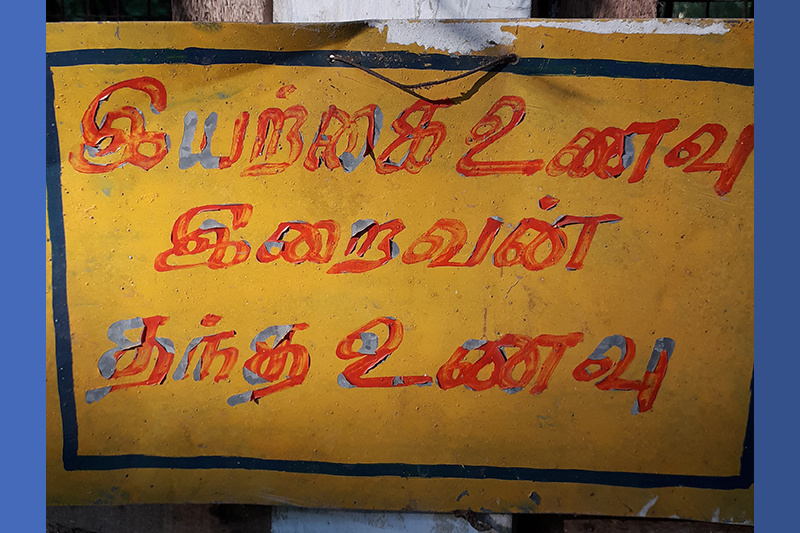 இயற்கை உணவு
இறைவன்
தந்த உணவு